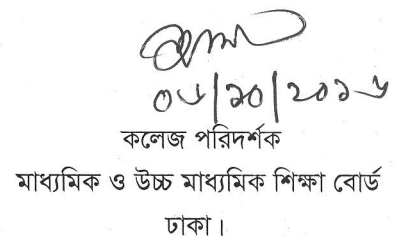 ০৬/১০/২০১৬
কলেজ পরিদর্শক
মাধ্যমিক ও উচ্চ মাধ্যমিক শিক্ষা বোর্ড
ঢাকা।